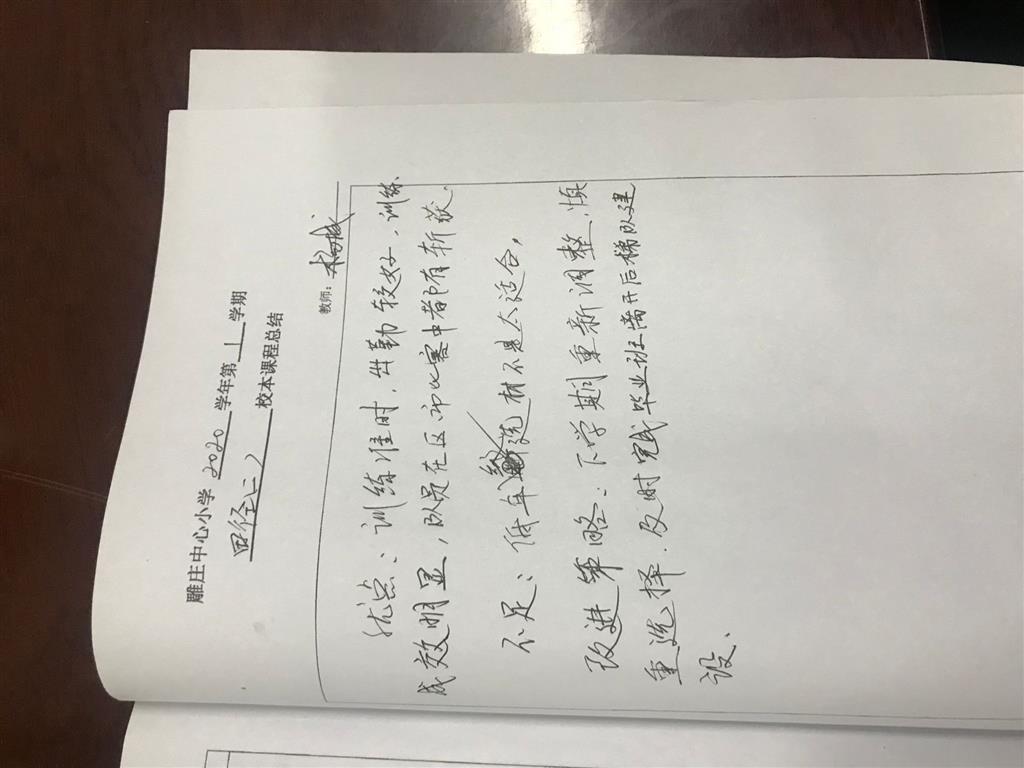 雕庄中心小学 2020 学年第 1 学期
田径(二) 校本课程总结
教师:
优点:训练准时,出勤较好,训练
成效明显,队员在区市比赛中都有斩获。
不足:低年级选材不是太适合,
改进策略:下学期重新调整,慎
重选择.及时完成毕业班离开后梯队建
设、